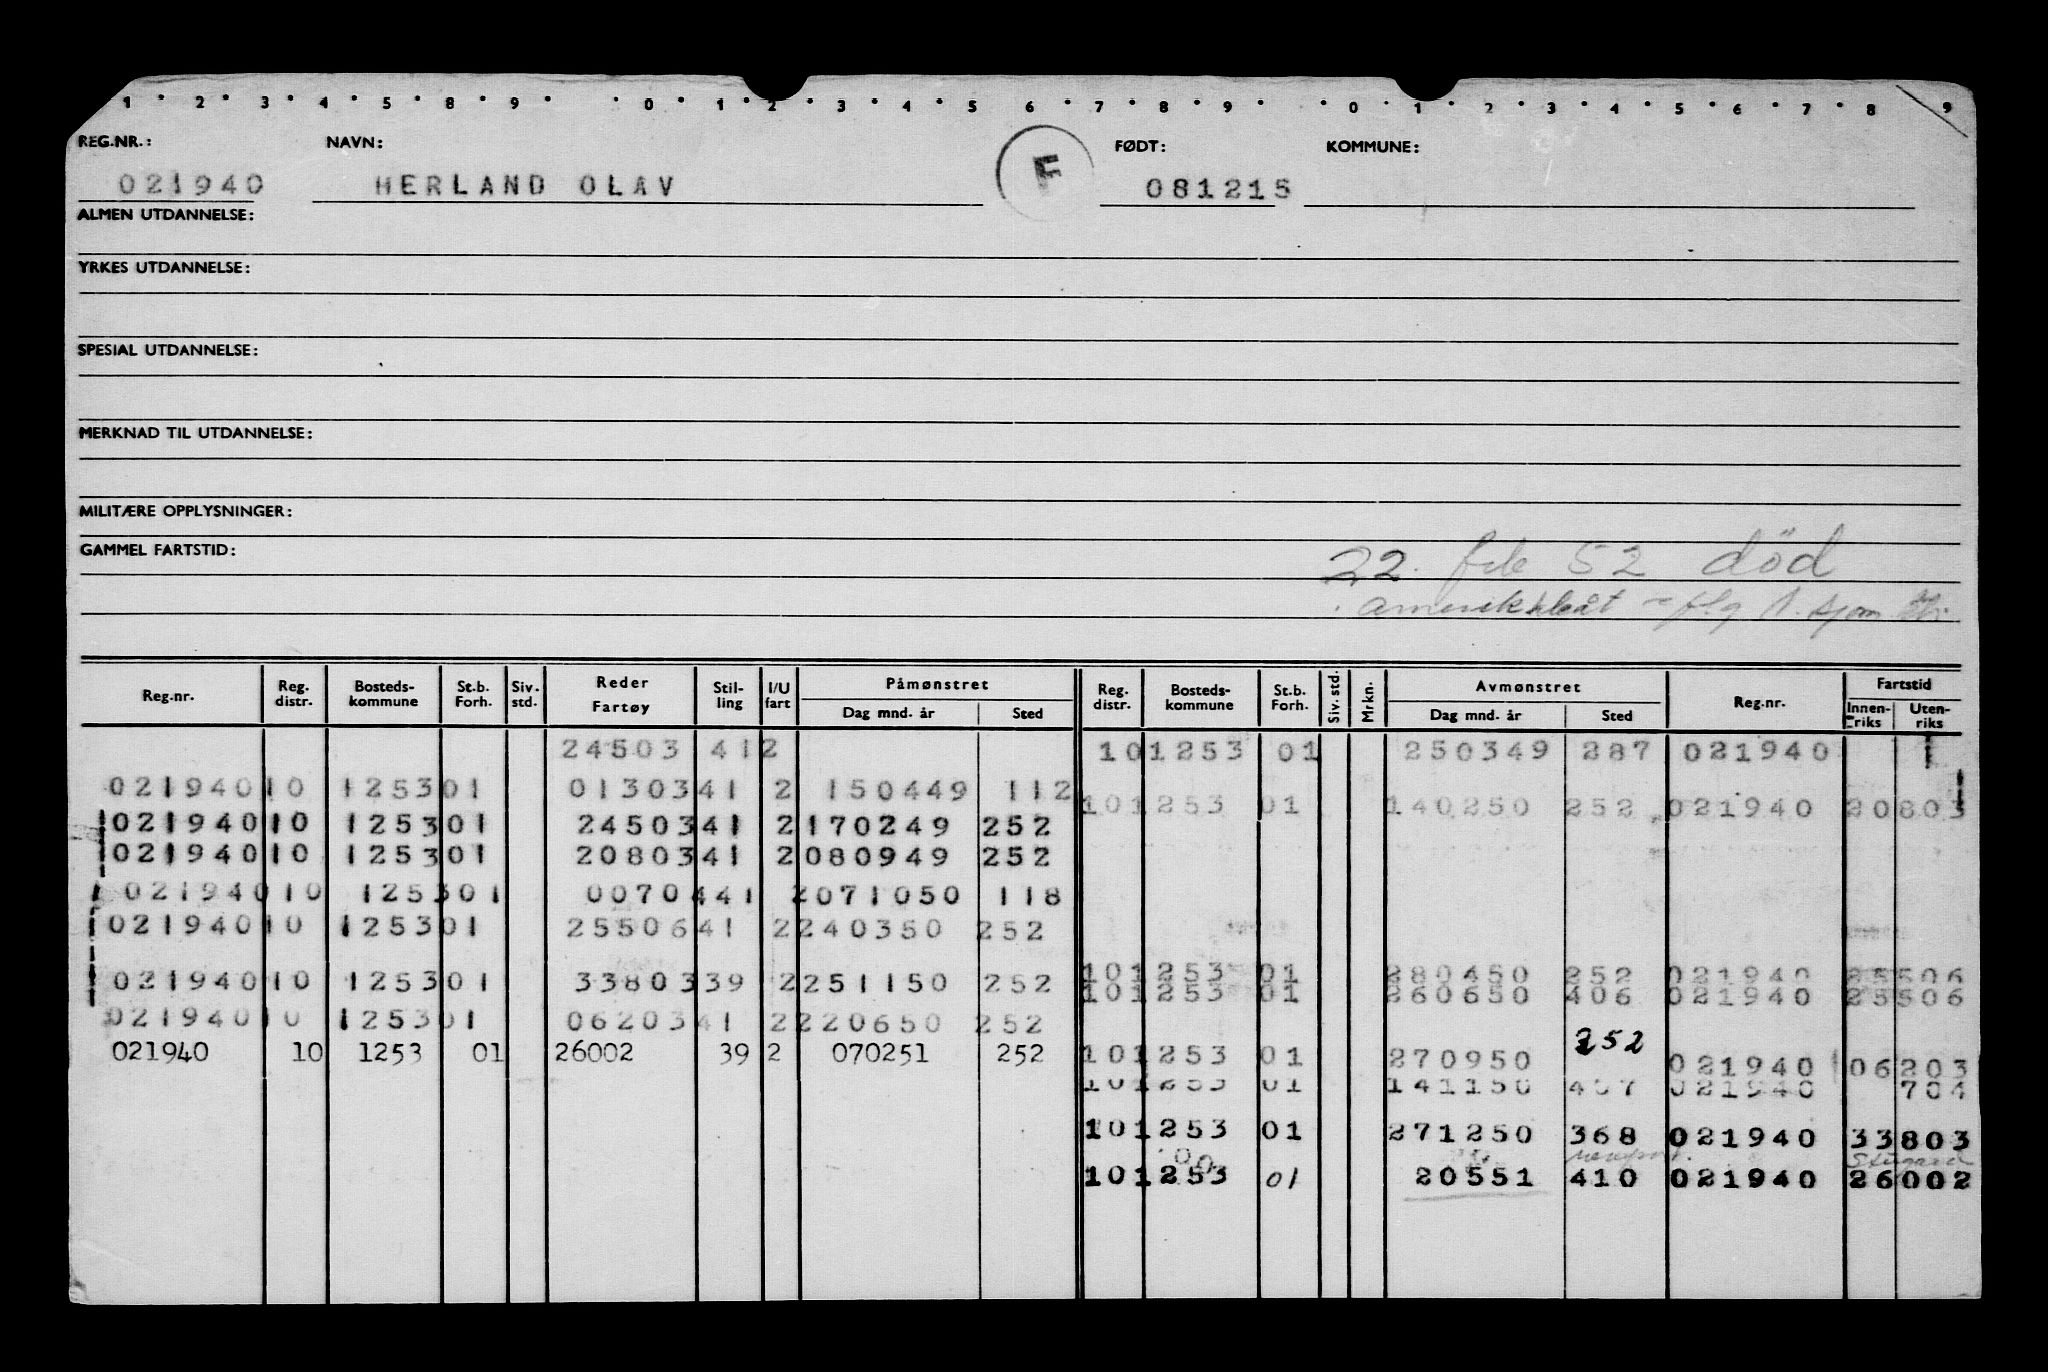 1 2 3 4 5 8 9 0 1 2 3 4 5 6 7 8 9 0 1 2 3 4 5 6 7 8 9
REG.NR.: NAVN: FØDT: KOMMUNE:
021940 HERLAND OLAV F 081215
ALMEN UTDANNELSE:
YRKES UTDANNELSE:
SPESIAL UTDANNELSE:
MERKNAD TIL UTDANNELSE:
MILITÆRE OPPLYSNINGER:
GAMMEL FARTSTID:
22. feb 52 død
Reg.nr. Reg. distr. Bosteds-kommune St.b. Forh. Siv. std. Reder Fartøy Stil-ling I/U fart Påmønstret Dag mnd. år Sted Reg. distr. Bosteds-kommune St.b. Forh. Siv. std. Mrkn. Avmønstret Dag mnd. år Sted Reg.nr. Fartstid Innen-riks Uten-riks
24503 41 2 10 1253 01 250349 287 021940
021940 10 1253 01 01303 41 2 150449 112
10 1253 01 140250 252 021940 20803
021940 10 1253 01 24503 41 2 170249 252
021940 10 1253 01 20803 41 2 080949 252
021940 10 1253 01 00704 41 2 071050 118
021940 10 1253 01 25506 41 2 240350 252
021940 10 1253 01 33803 39 2 251150 252
10 1253 01 280450 252 021940 25506
10 1253 01 260650 406 021940 25506
021940 10 1253 01 06203 41 2 220650 252
021940 10 1253 01 26002 39 2 070251 252
10 1253 01 270950 252 021940 06203
10 1253 01 141150 407 021940 704
10 1253 01 271250 368 021940 33803
10 1253 01 20551 410 021940 26002